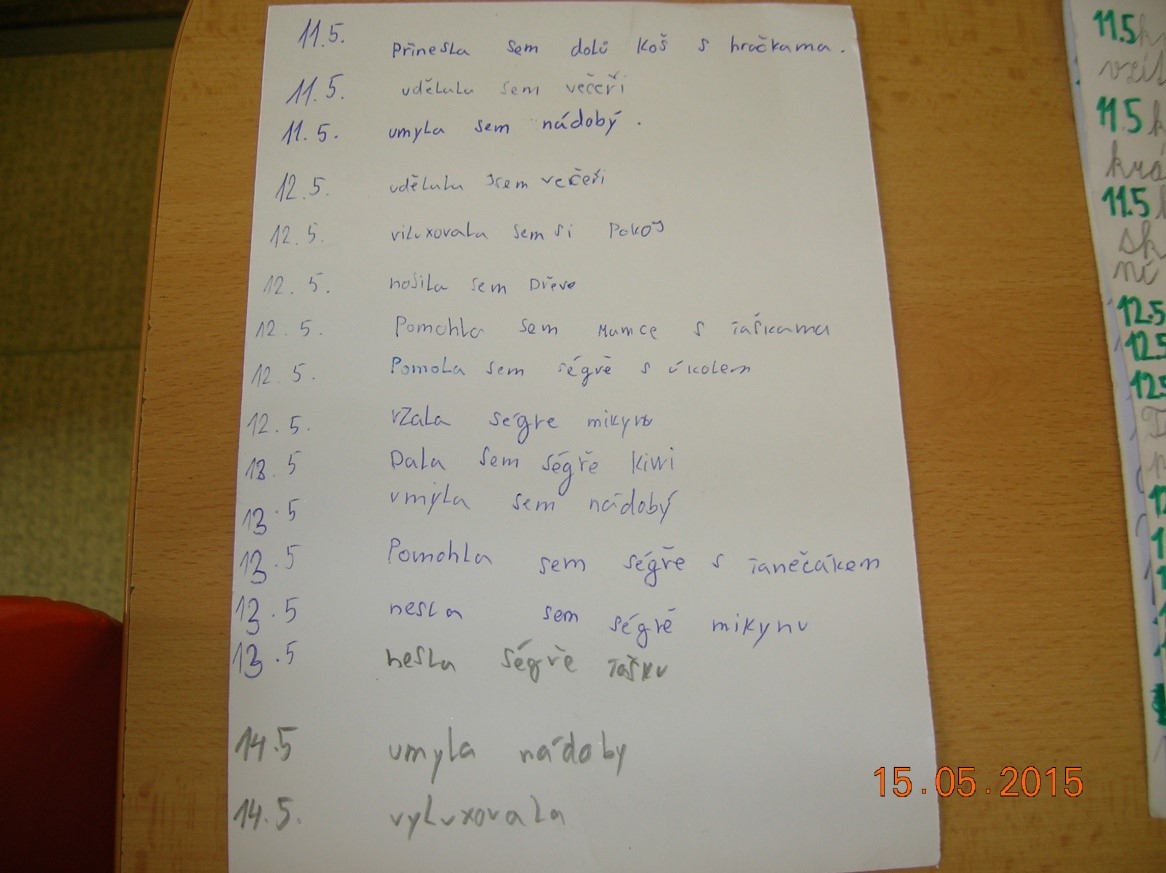 11.5. Přinesla sem dolů koš s hračkama.
11.5. udělala sem večeři
11.5. umyla sem nádobý.
12.5. udělala jsem večeři
12.5. viluxovala sem si Pokoj
12.5. nosila sem Dřevo
12.5. Pomohla sem Mamce s taškama
12.5. Pomola sem ségře s úkolem
12.5. vzala ségre mikynu
13.5 Dala sem ségře kiwi
13.5 umyla sem nádobý
13.5 Pomohla sem ségře s tanečákem
13.5 nesla sem ségře mikynu
13.5 nesla ségře tašku
14.5 umyla nádoby
14.5. vyluxovala
11.5
11.5
11.5
12.5
12.5
15.05.2015